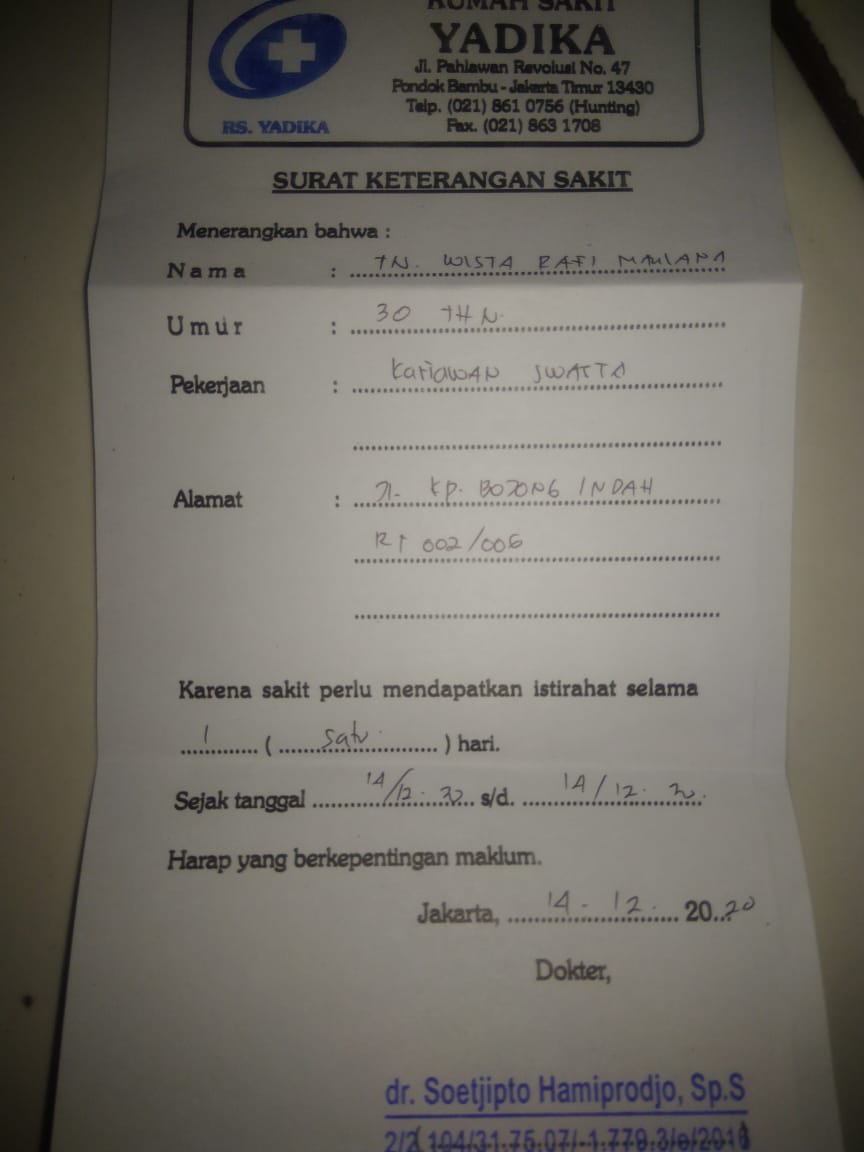 RUMAH SAKIT
YADIKA
Jl. Pahlawan Revolusi No. 47
Pondok Bambu - Jakarta Timur 13430
Telp. (021) 861 0756 (Hunting)
Fax. (021) 863 1708
RS. YADIKA
SURAT KETERANGAN SAKIT
Menerangkan bahwa :
Nama : TN. WISTA RAFI MAULANA
Umur : 30 THN.
Pekerjaan : KARIAWAN SWATTA
Alamat : Jl. KP. BOJONG INDAH
RT 002/006
Karena sakit perlu mendapatkan istirahat selama
1 ( satu ) hari.
Sejak tanggal 14/12.20 s/d. 14/12.20.
Harap yang berkepentingan maklum.
Jakarta, 14-12. 20.20
Dokter,
dr. Soetjipto Hamiprodjo, Sp.S